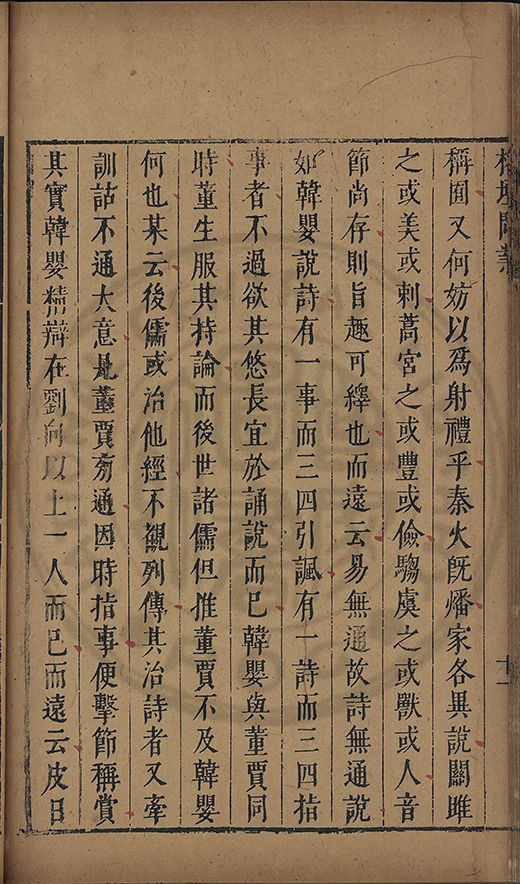 榕壇問業
十一
稱囿又何妨以爲射禮乎秦火旣燔家各異說關雎
之或美或刺蒿宮之或豐或儉騶虞之或獸或人音
節尚存則旨趣可繹也而遠云易無通故詩無通說
如韓嬰說詩有一事而三四引諷有一詩而三四指
事者不過欲其悠長宜於誦說而已韓嬰與董賈同
時董生服其持論而後世諸儒但推董賈不及韓嬰
何也某云後儒或治他經不觀列傳其治詩者又牽
訓詁不通大意是董賈旁通因時指事便擊節稱賞
其實韓嬰精辯在劉向以上一人而已而遠云皮日